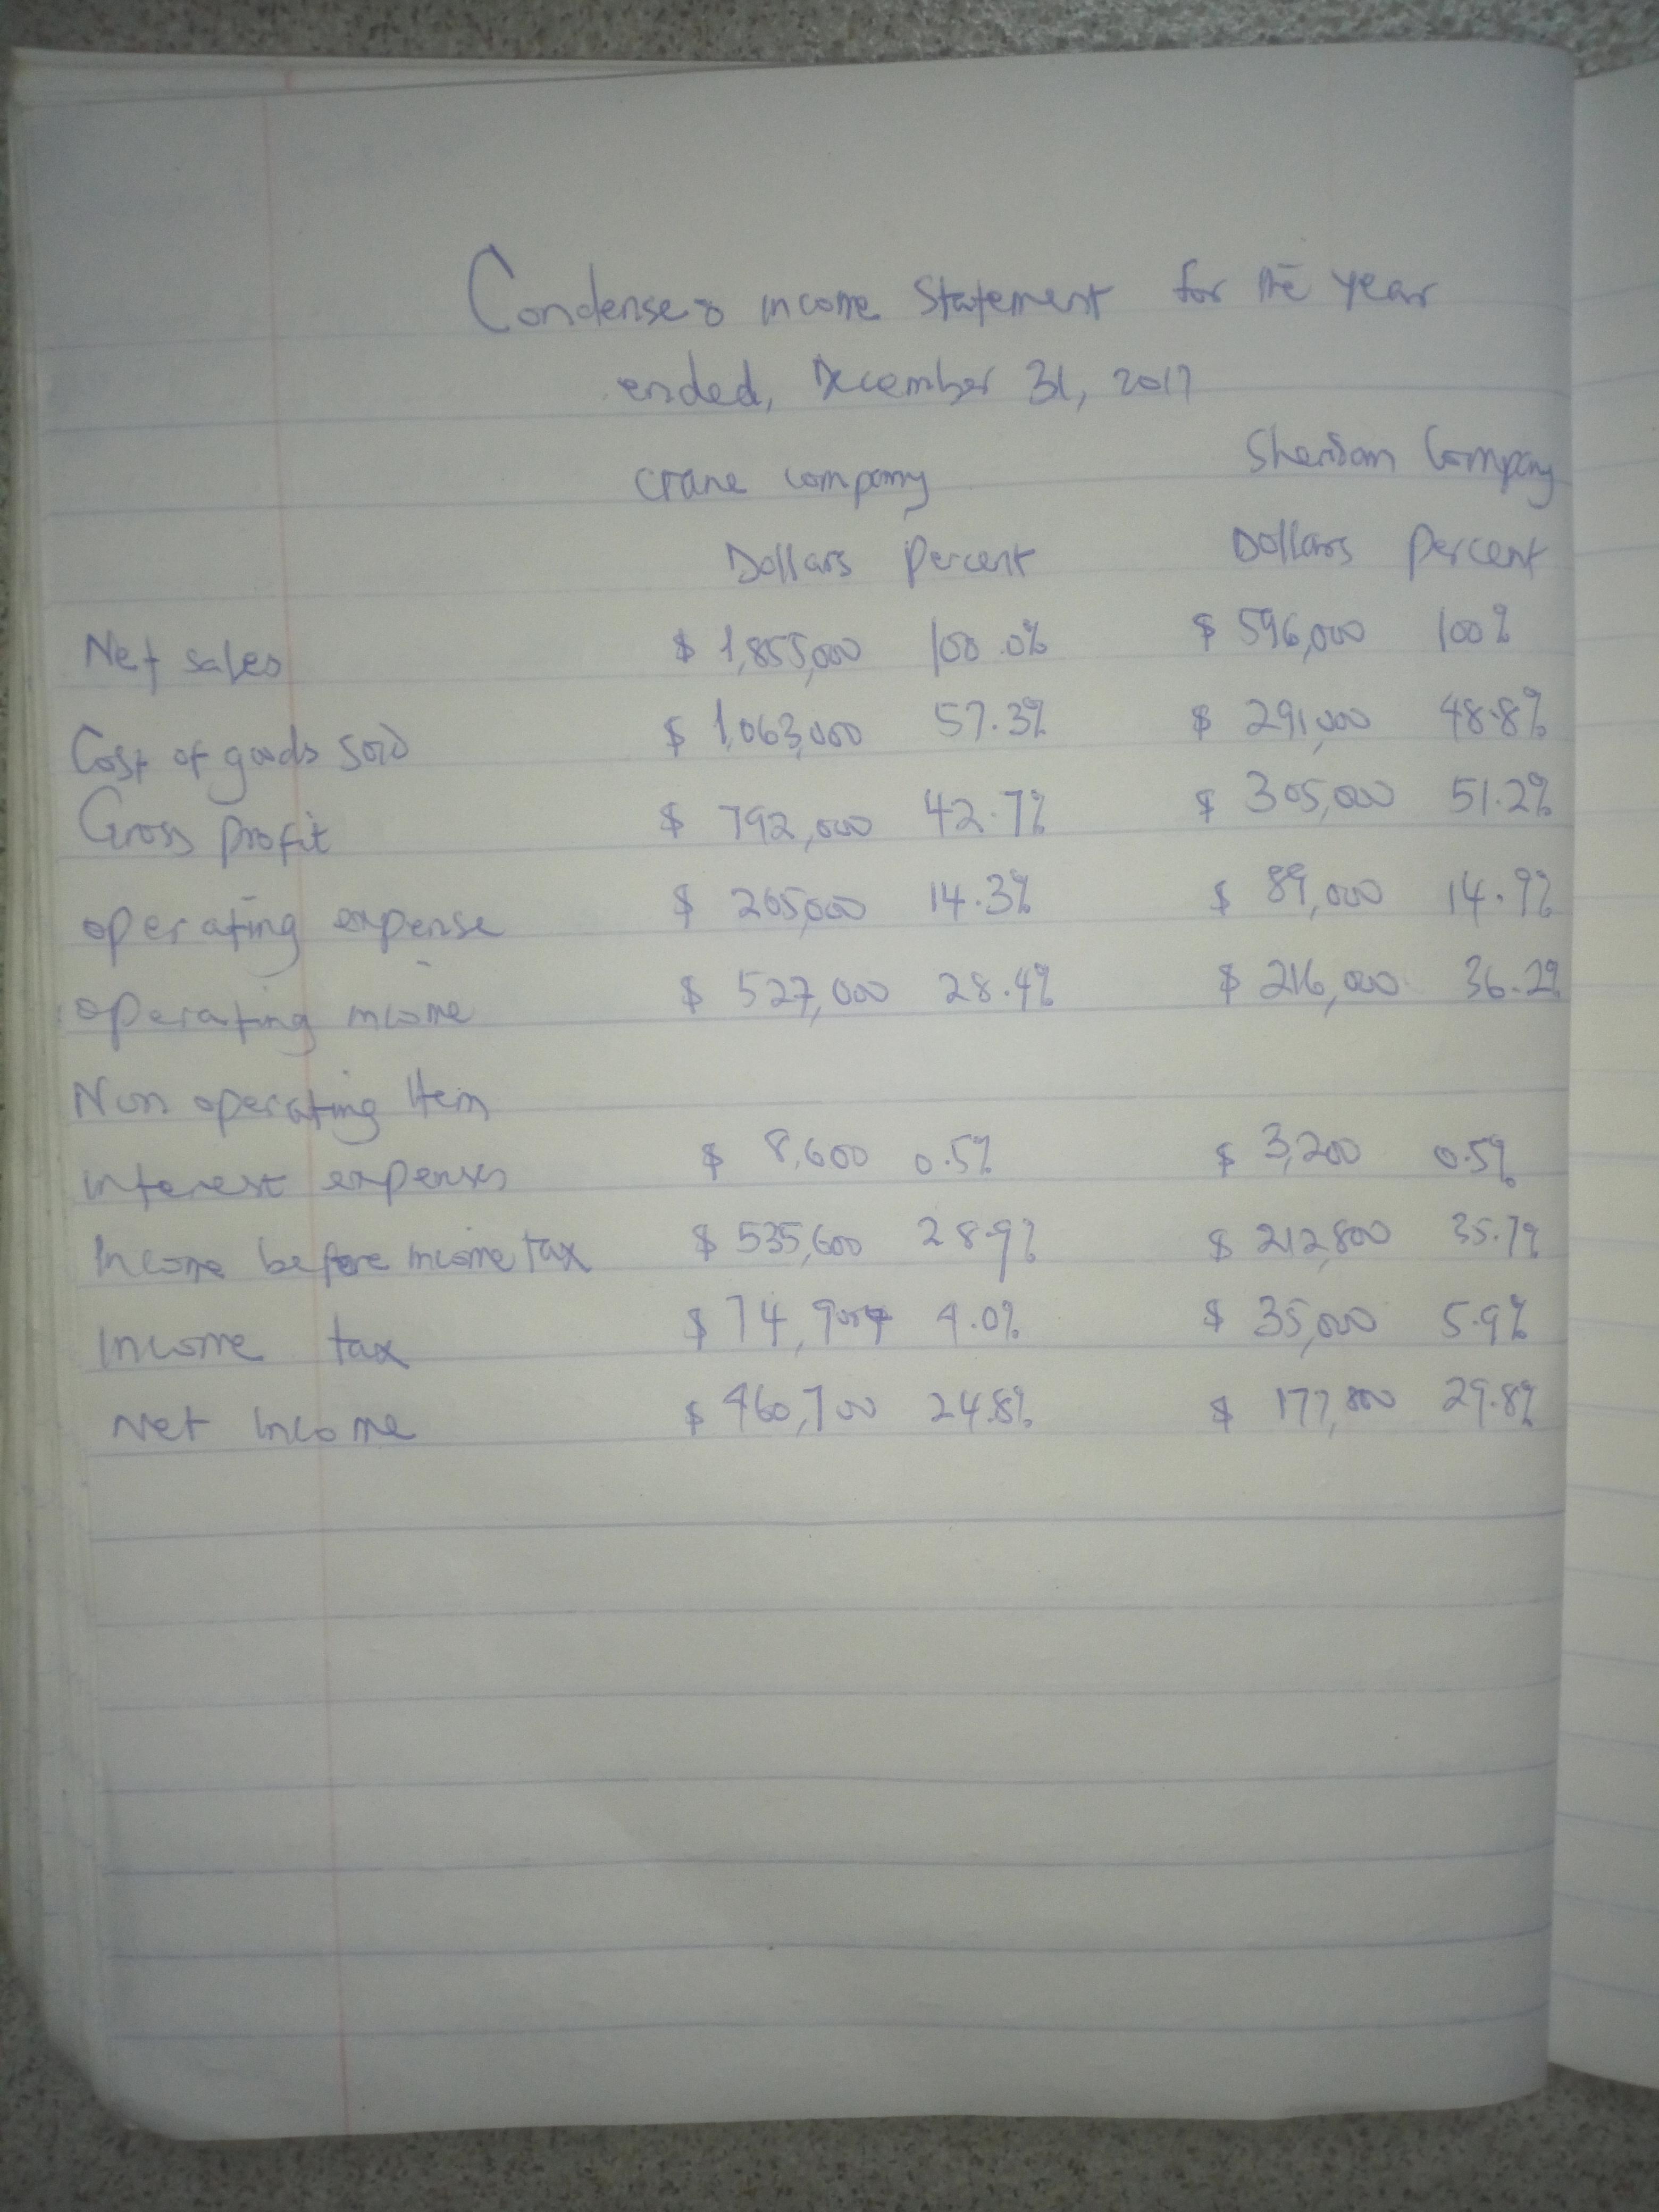 Condensed income Statement for the year
ended, December 31, 2017
Crane company Sheridan Company
Dollars Percent Dollars Percent
Net sales $ 1,855,000 100.0% $ 596,000 100%
Cost of goods sold $ 1,063,000 57.3% $ 291,000 48.8%
Gross profit $ 792,000 42.7% $ 305,000 51.2%
operating expense $ 265,000 14.3% $ 89,000 14.9%
operating income $ 527,000 28.4% $ 216,000 36.2%
Non operating Item
interest expenses $ 8,600 0.5% $ 3,200 0.5%
Income before income tax $ 535,600 28.9% $ 212,800 35.7%
Income tax $ 74,900 4.0% $ 35,000 5.9%
Net Income $ 460,700 24.8% $ 177,800 29.8%